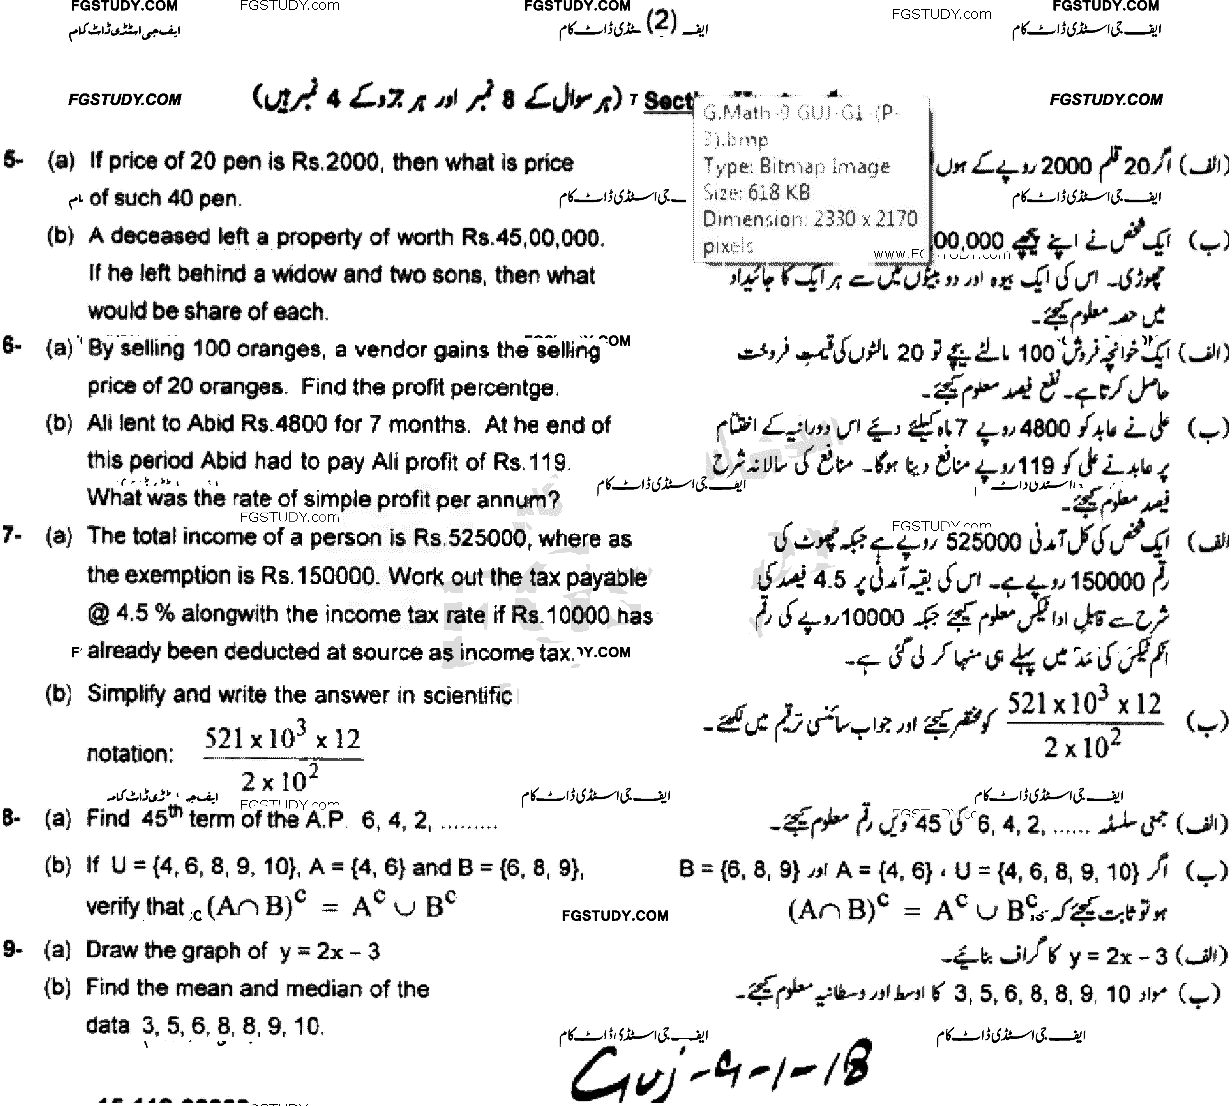 FGSTUDY.COM FGSTUDY.com FGSTUDY.COM FGSTUDY.com FGSTUDY.COM
ایف جی اسٹڈی ڈاٹ کام (2) ایف جی اسٹڈی ڈاٹ کام
FGSTUDY.COM (ہر سوال کے 8 نمبر اور ہر جزو کے 4 نمبر ہیں) FGSTUDY.COM
G.Math -9 GUJ-G1 -(P-
2).bmp
Type: Bitmap Image
Size: 618 KB
Dimension: 2330 x 2170
pixels
5- (a) If price of 20 pen is Rs.2000, then what is price (الف) اگر 20 قلم 2000 روپے کے ہوں
of such 40 pen. ایف جی اسٹڈی ڈاٹ کام
(b) A deceased left a property of worth Rs.45,00,000. (ب) ایک شخص نے اپنے پیچھے 00,000
If he left behind a widow and two sons, then what چھوڑی۔ اس کی ایک بیوہ اور دو بیٹوں میں سے ہر ایک کا جائیداد
would be share of each. میں حصہ معلوم کیجئے۔
6- (a) By selling 100 oranges, a vendor gains the selling (الف) ایک خوانچہ فروش 100 مالٹے بیچے تو 20 مالٹوں کی قیمتِ فروخت
price of 20 oranges. Find the profit percentge. حاصل کرتا ہے۔ نفع فیصد معلوم کیجئے۔
(b) Ali lent to Abid Rs.4800 for 7 months. At he end of (ب) علی نے عابد کو 4800 روپے 7 ماہ کیلئے دیئے اس دورانیہ کے اختتام
this period Abid had to pay Ali profit of Rs.119. پر عابد نے علی کو 119 روپے منافع دینا ہوگا۔ منافع کی سالانہ شرح
What was the rate of simple profit per annum? فیصد معلوم کیجئے۔
ایف جی اسٹڈی ڈاٹ کام
FGSTUDY.com FGSTUDY.com
7- (a) The total income of a person is Rs.525000, where as (الف) ایک شخص کی کل آمدنی 525000 روپے ہے جبکہ چھوٹ کی
the exemption is Rs.150000. Work out the tax payable رقم 150000 روپے ہے۔ اس کی بقیہ آمدنی پر 4.5 فیصد کی
@ 4.5 % alongwith the income tax rate if Rs.10000 has شرح سے قابلِ ادا ٹیکس معلوم کیجئے جبکہ 10000 روپے کی رقم
already been deducted at source as income tax. انکم ٹیکس کی مد میں پہلے ہی منہا کر لی گئی ہے۔
(b) Simplify and write the answer in scientific
notation: (521 x 10³ x 12) / (2 x 10²) (ب) (521 x 10³ x 12) / (2 x 10²) کو مختصر کیجئے اور جواب سائنسی ترقیم میں لکھئے۔
ایف جی اسٹڈی ڈاٹ کام ایف جی اسٹڈی ڈاٹ کام
8- (a) Find 45th term of the A.P. 6, 4, 2, ......... (الف) جمعی سلسلہ ...... ,6, 4, 2 کی 45 ویں رقم معلوم کیجئے۔
(b) If U = {4, 6, 8, 9, 10}, A = {4, 6} and B = {6, 8, 9}, (ب) اگر U = {4, 6, 8, 9, 10} ، A = {4, 6} اور B = {6, 8, 9}
verify that (A∩B)ᶜ = Aᶜ ∪ Bᶜ FGSTUDY.COM ہو تو ثابت کیجئے کہ (A∩B)ᶜ = Aᶜ ∪ Bᶜ
9- (a) Draw the graph of y = 2x – 3 (الف) y = 2x – 3 کا گراف بنائیے۔
(b) Find the mean and median of the (ب) مواد 3, 5, 6, 8, 8, 9, 10 کا اوسط اور وسطانیہ معلوم کیجئے۔
data 3, 5, 6, 8, 8, 9, 10.
ایف جی اسٹڈی ڈاٹ کام ایف جی اسٹڈی ڈاٹ کام
Guj-9-1-18